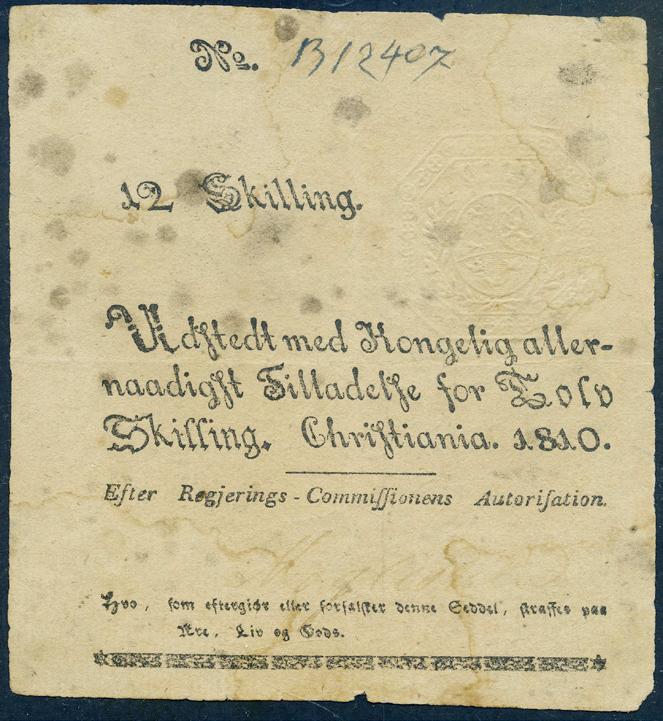 No. B12407
12 Skilling.
Udſtedt med Kongelig aller-
naadigſt Tilladelſe for Tolv
Skilling. Chriſtiania. 1810.
Efter Regjerings-Commiſſionens Autoriſation.
Hvo, ſom eftergiør eller forfalſker denne Seddel, ſtraffes paa
Ære, Liv og Gods.